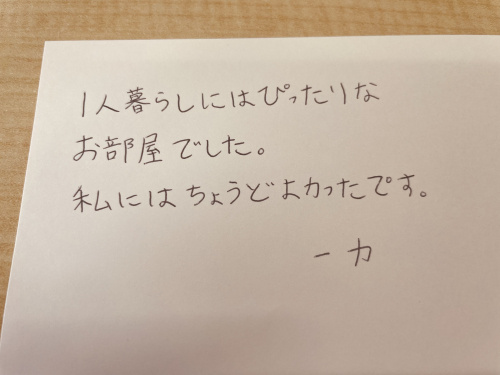 1人暮らしにはぴったりな
お部屋でした。
私にはちょうどよかったです。
一カ